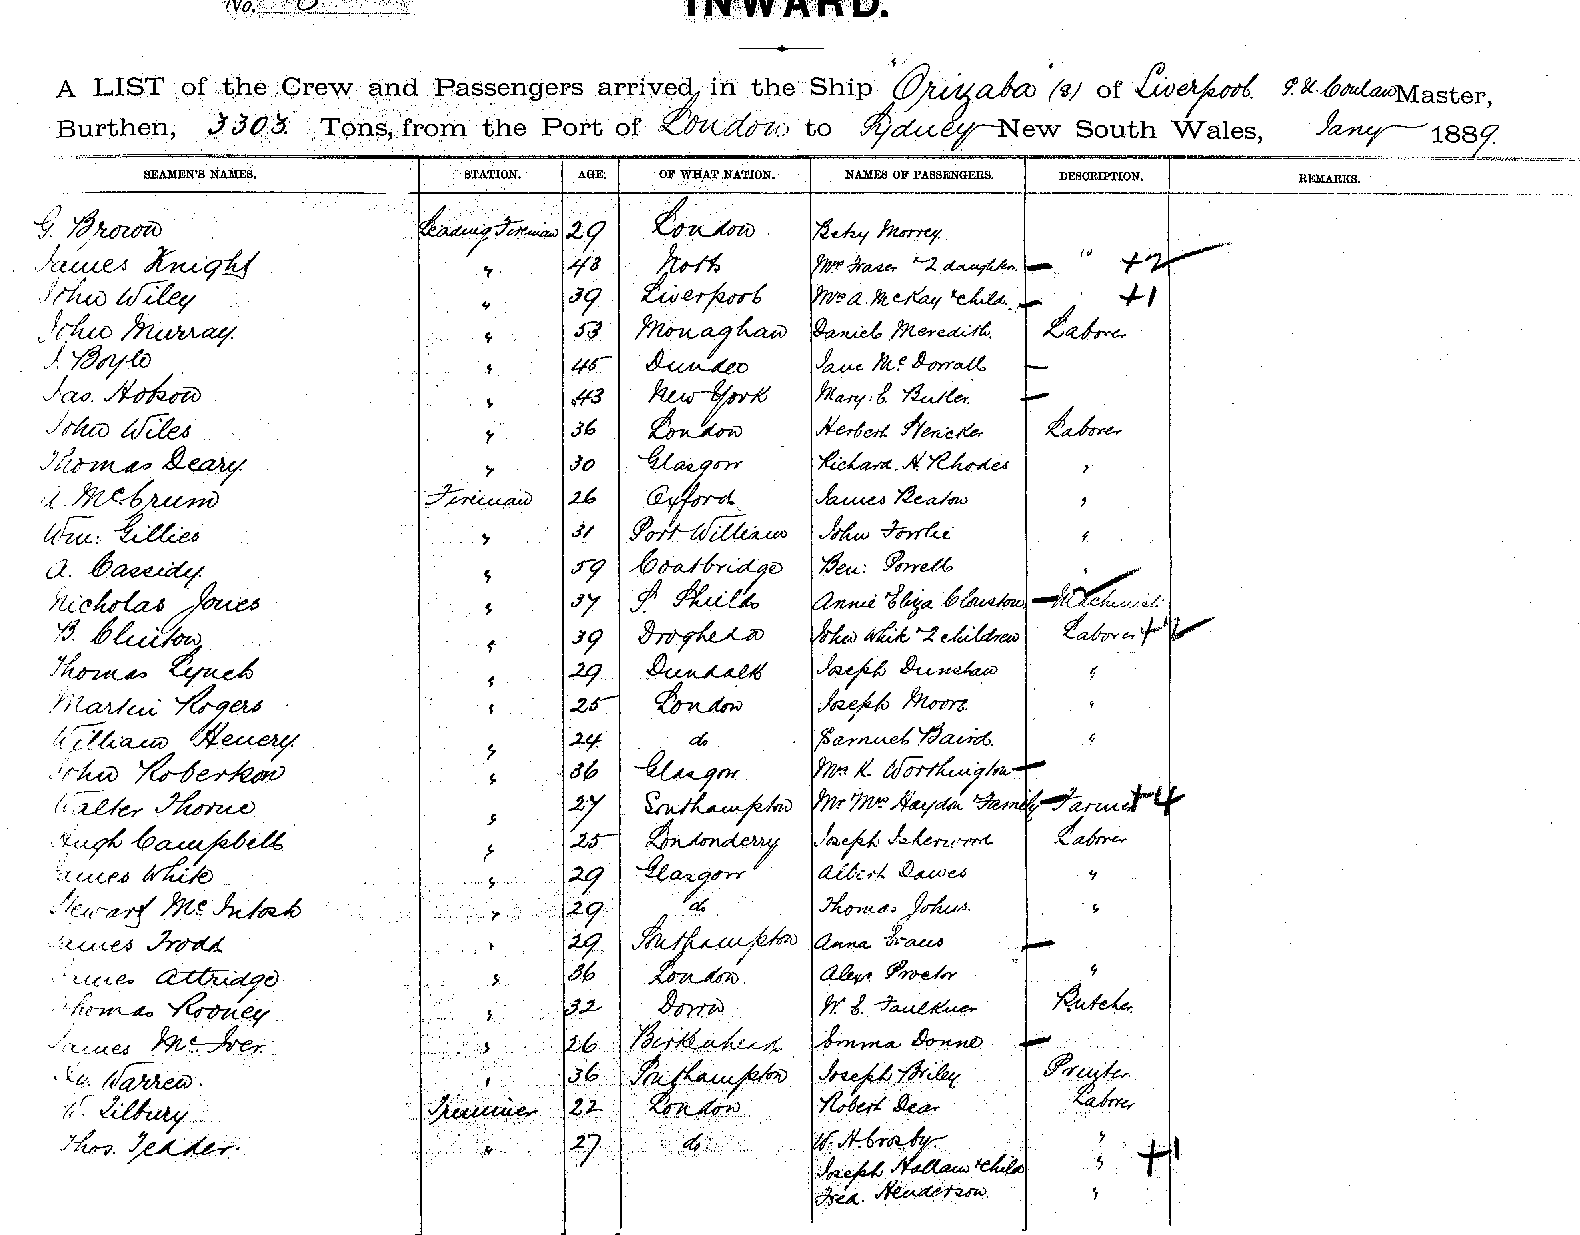 No.
INWARD.
A LIST of the Crew and Passengers arrived in the Ship "Orizaba" (s) of Liverpool. Master,
Burthen, 3303 Tons, from the Port of London to Sydney New South Wales, Jany 1889.
SEAMEN'S NAMES. STATION. AGE. OF WHAT NATION. NAMES OF PASSENGERS. DESCRIPTION. REMARKS.
G. Brown Leading Fireman 29 London Betsy Morrey
James Knight " 48 Mrs Fraser & 2 daughters " +2
John Wiley " 39 Liverpool Mrs A. McKay & child +1
John Murray. " 53 Monaghan Daniel Meredith. Laborer
J. Boyle " 45 Dundee Jane McDorrall
Jas. Hobson " 43 New York Mary E Butler
John Wiles " 36 London Herbert Laborer
Thomas Deary. " 30 Glasgow Richard H. Rhodes "
A. McCrum Fireman 26 Oxford James Beaton "
Wm: Gillies " 31 Port William John "
A. Cassidy. " 59 Coatbridge Ben: Powell "
Nicholas Jones " 37 S. Shields Annie Eliza Clouston
B. Clinton " 39 Drogheda John White & 2 children Laborer
Thomas Lynch " 29 Dundalk Joseph Dunstan "
Martin Rogers " 25 London Joseph Moore "
William Henery. " 24 do Samuel Baird. "
John Robertson " 36 Glasgow Mrs K. Worthington
Walter Thorne " 27 Southampton Mr Mrs Haydon & Family Farmer +4
Hugh Campbell " 25 Londonderry Joseph Isherwood Laborer
James White " 29 Glasgow Albert Dawes "
Stewart McIntosh " 29 do Thomas Johns. "
James Trodd " 29 Southampton Anna Evans
James Attridge " 36 London Alexr Proctor "
Thomas Rooney " 32 W. E. Faulkner Butcher
James McIver " 26 Birkenhead Emma Donne
Warren. " 36 Southampton Joseph Briley Printer
W. Tilbury Trimmer 22 London Robert Dear Laborer
Thos. Tedder. " 27 do W. H. Crosby "
Joseph Hallam & child " +1
Fred. Henderson "